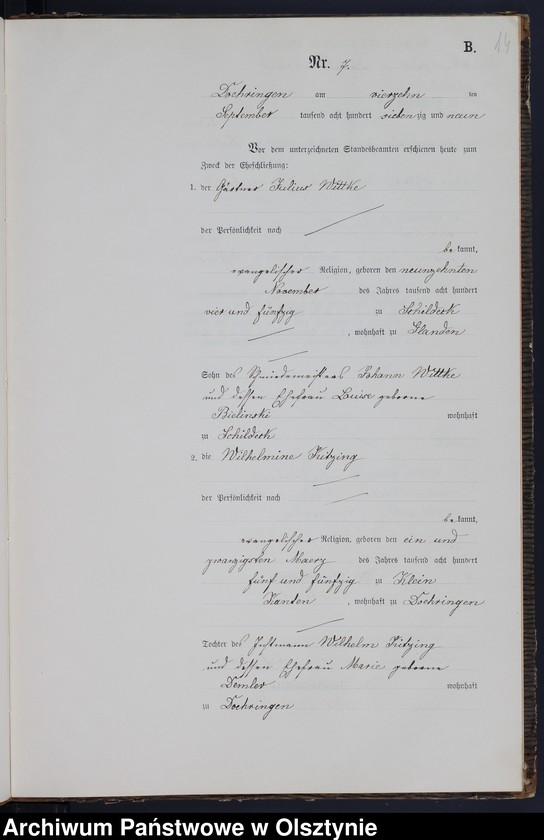 14
B.
Nr. 7.
Doehringen am vierzehn ten
September tausend acht hundert siebenzig und neun
Vor dem unterzeichneten Standesbeamten erschienen heute zum
Zweck der Eheschließung:
1. der Gärtner Julius Wittke
der Persönlichkeit nach
be kannt,
evangelischer Religion, geboren den neunzehnten
November des Jahres tausend acht hundert
vier und fünfzig zu Schildeck
, wohnhaft zu Glanden
Sohn des Schmiedemeisters Johann Wittke
und dessen Ehefrau Luise geborne
Bielinski wohnhaft
zu Schildeck
2. die Wilhelmine
der Persönlichkeit nach
be kannt,
evangelischer Religion, geboren den ein und
zwanzigsten Maerz des Jahres tausend acht hundert
fünf und fünfzig zu Klein
, wohnhaft zu Doehringen
Tochter des Instmann Wilhelm
und dessen Ehefrau Marie geborne
Demler wohnhaft
zu Doehringen
Archiwum Państwowe w Olsztynie